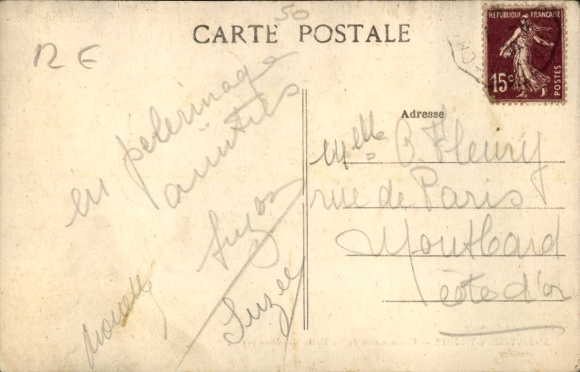 50
CARTE POSTALE
12 €
RÉPUBLIQUE FRANÇAISE
15c
POSTES
Adresse
en pelerinage
amitiés
Suzon
Suzee
Mlle B Fleury
rue de Paris
Montbard
Côte d'or